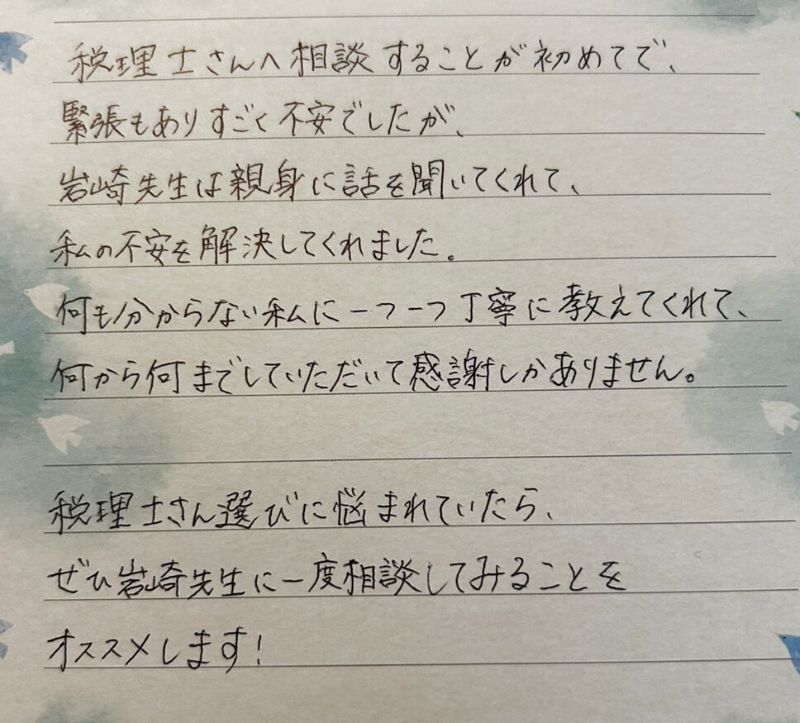 税理士さんへ相談することが初めてで、
緊張もありすごく不安でしたが、
岩崎先生は親身に話を聞いてくれて、
私の不安を解決してくれました。
何も分からない私に一つ一つ丁寧に教えてくれて、
何から何までしていただいて感謝しかありません。
税理士さん選びに悩まれていたら、
ぜひ岩崎先生に一度相談してみることを
オススメします！